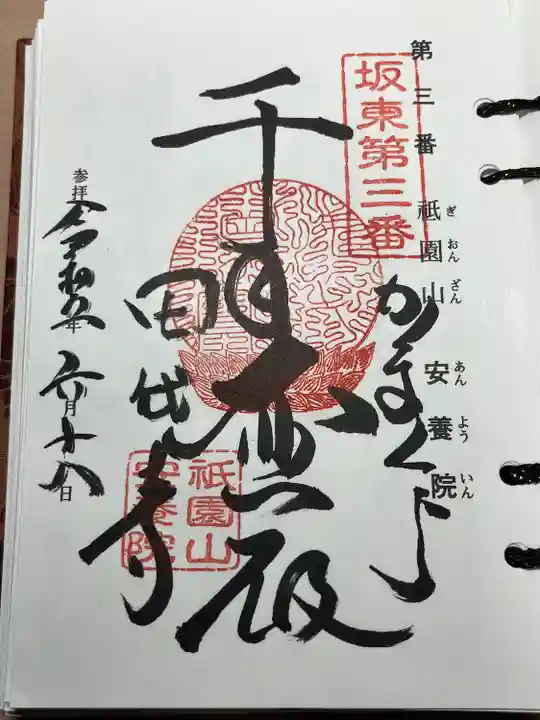 第三番 祇園山 安養院
ぎおんざん あんよういん
坂東第三番
かまくら
千手
殿
田代寺
祇園山
安養院
参拝 令和五年 六月十八日